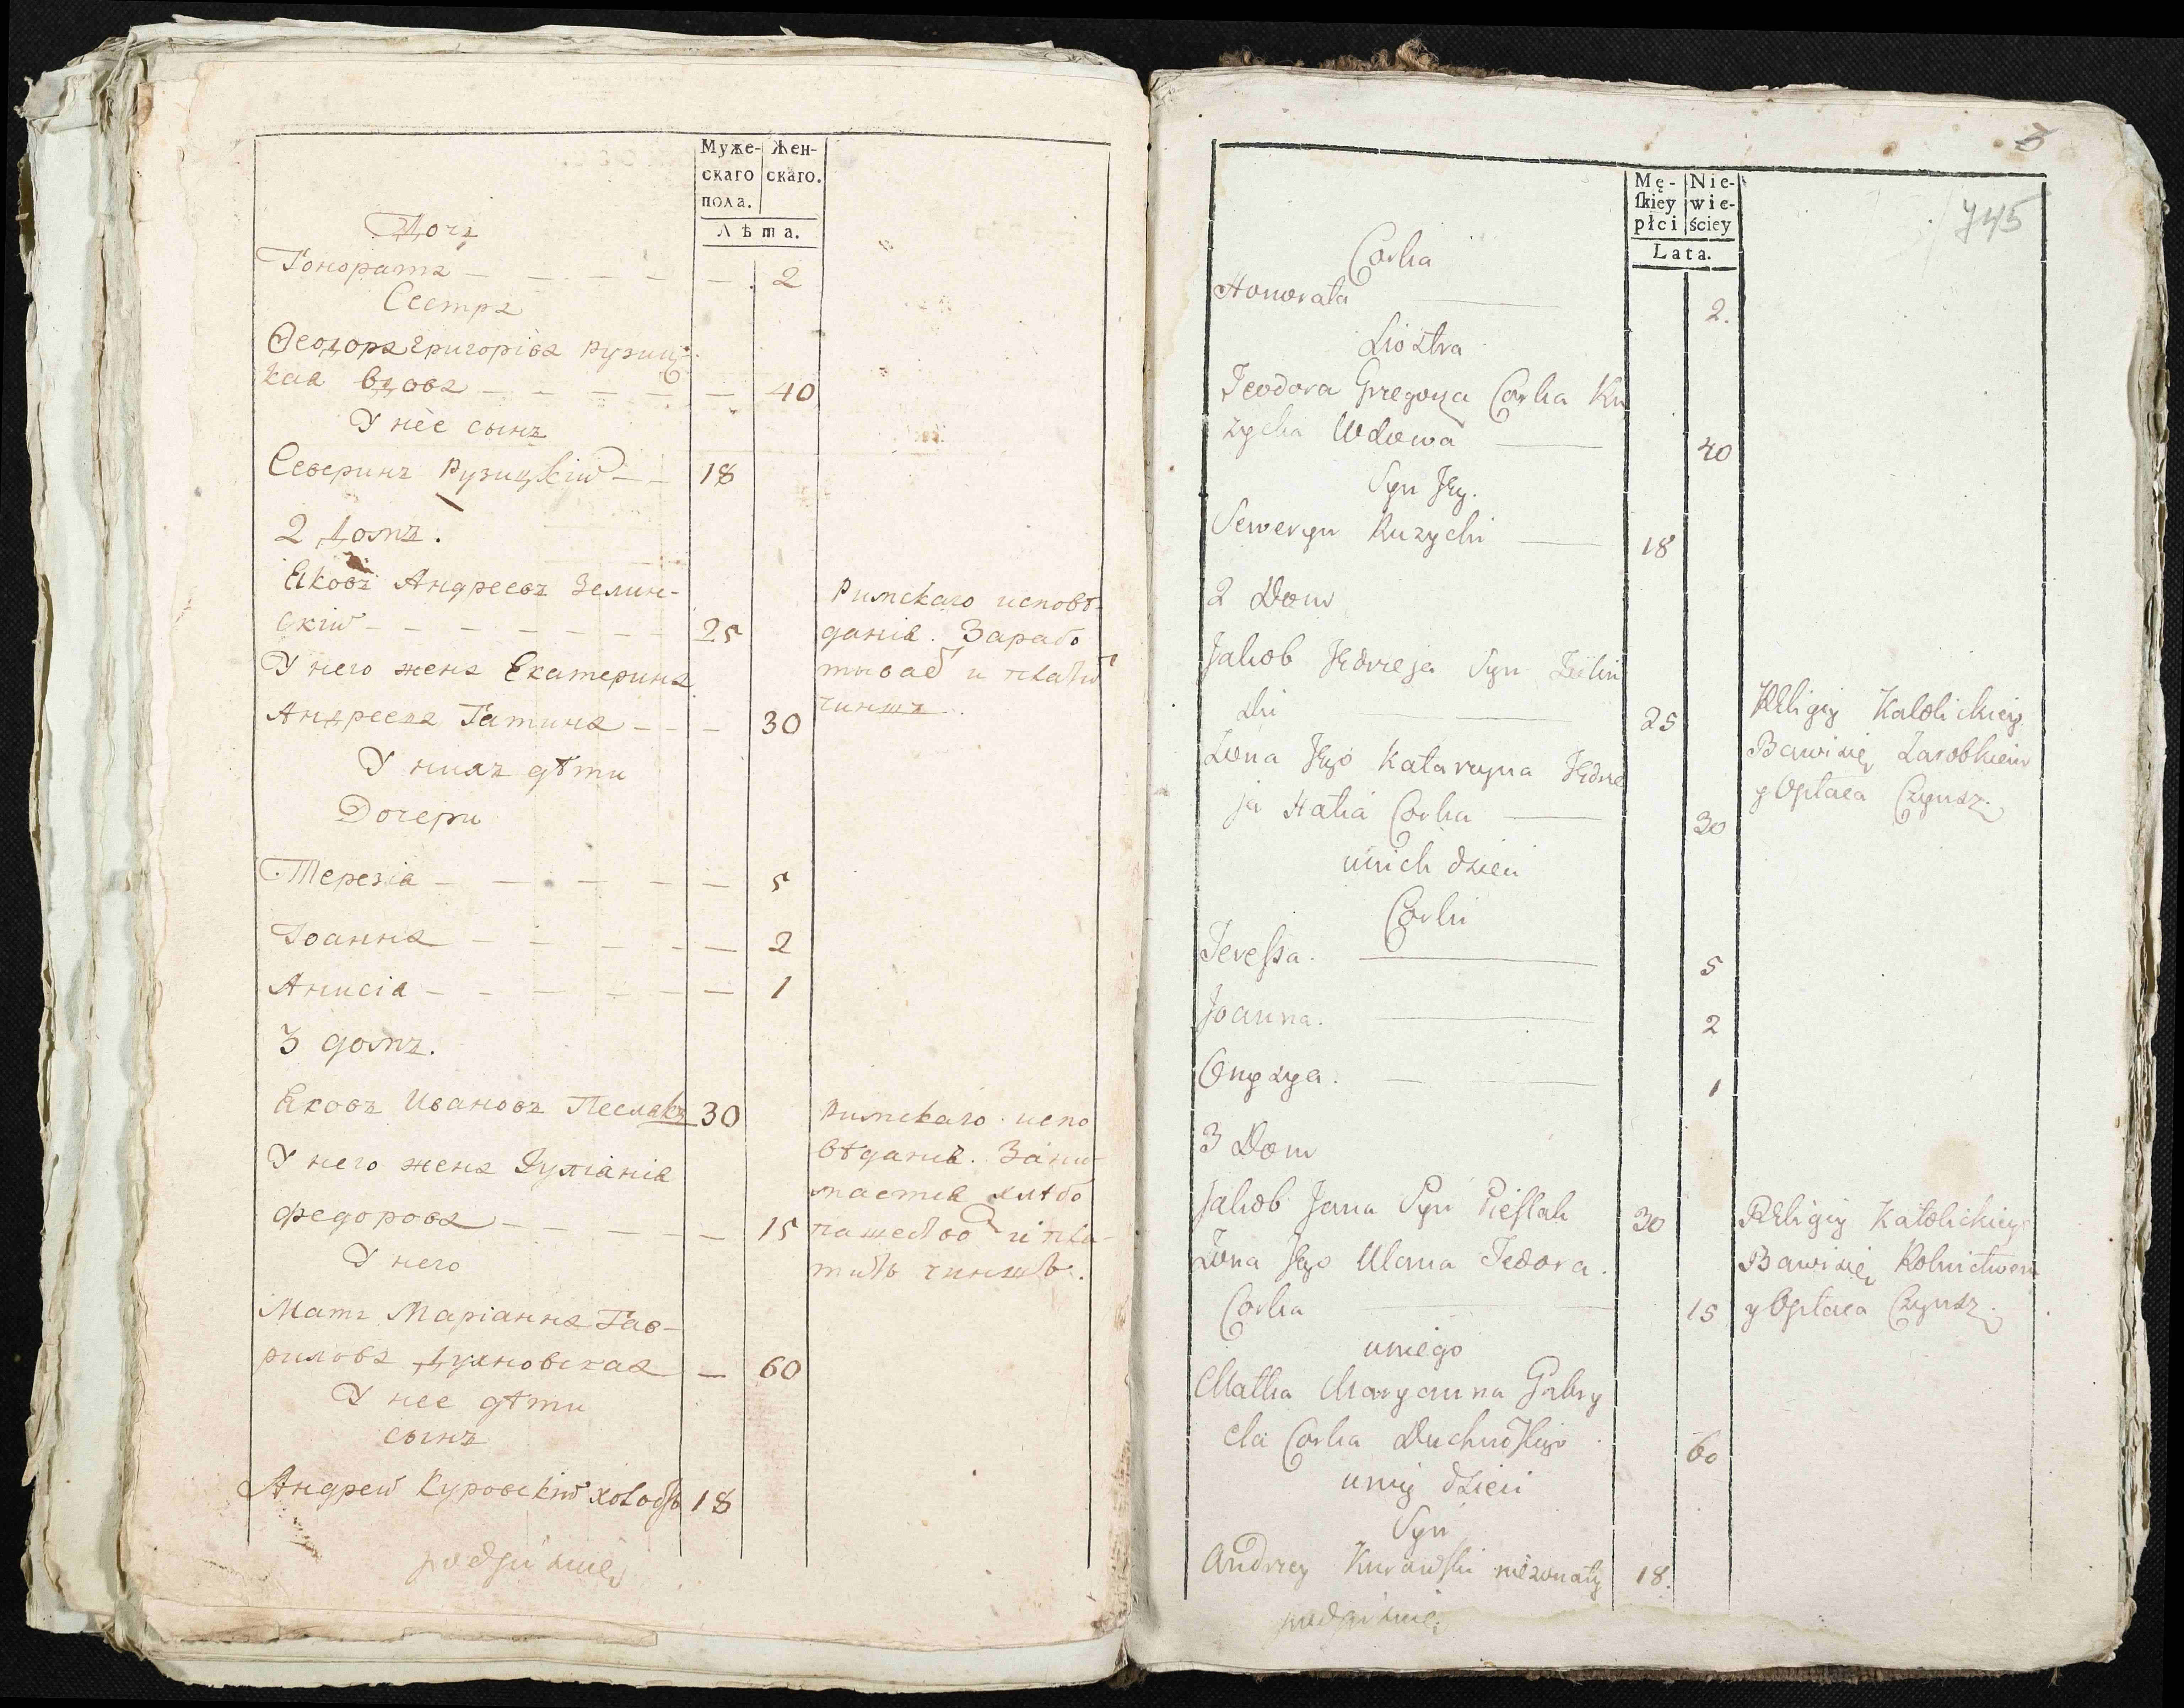 Муже- Жен-
скаго скаго.
пола.
Лѣта.
Дочь
Гонората — 2
Сестра
Феодора Григоріва Рузиц
кая вдова — 40
У неё сынъ
Северинъ Рузицкій — 18
2 домъ.
Яковъ Андреевъ Зелин-
скій — 25
Римскаго исповѣ-
данія. Зарабо
тывае и платит
чиншъ
У него жена Екатерина
Андреева Гатина — 30
У нихъ дѣти
Дочери
Терезія — 5
Іоанна — 2
Анисія — 1
3 домъ.
Яковъ Ивановъ Песлякъ 30
Римскаго испо
вѣданія.
хлѣбо
пашество и пла-
титъ чиншъ.
У него жена Іуліанія
Федорова — 15
У него
Мать Маріанна Гав-
рилова Духновская — 60
У нее дѣти
сынъ
Андрей Куровскій холостъ 18
5
745
Mę- Nie-
ſkiey wie-
płci ściey
Lata.
Corka
Honorata — 2.
Siostra
Teodora Grzegorza Corka Ru
zycka Wdowa — 40
Syn Jey.
Seweryn Ruzycki — 18
2 Dom
Jakob Jędrzeja Syn Zielin
ski — 25
Religiy Katolickiey
Bawi się Zarobkiem
y Opłaca Czynsz.
Zona Jego Katarzyna Jędrze
ja Hatia Corka — 30
u nich dzieci
Corki
Tereſsa. — 5
Joanna. — 2
Onyzya. — 1
3 Dom
Jakob Jana Syn Pieſlak 30
Religiy Katolickiey
Bawi się Rolnictwem
y Opłaca Czynsz.
Zona Jego Ulana Fedora.
Corka — 15
u niego
Matka Maryanna Gabry
ela Corka Duchnoſkiego 60
u niy dzieci
Syn
Andrzey Kurawſki nieżonaty 18.